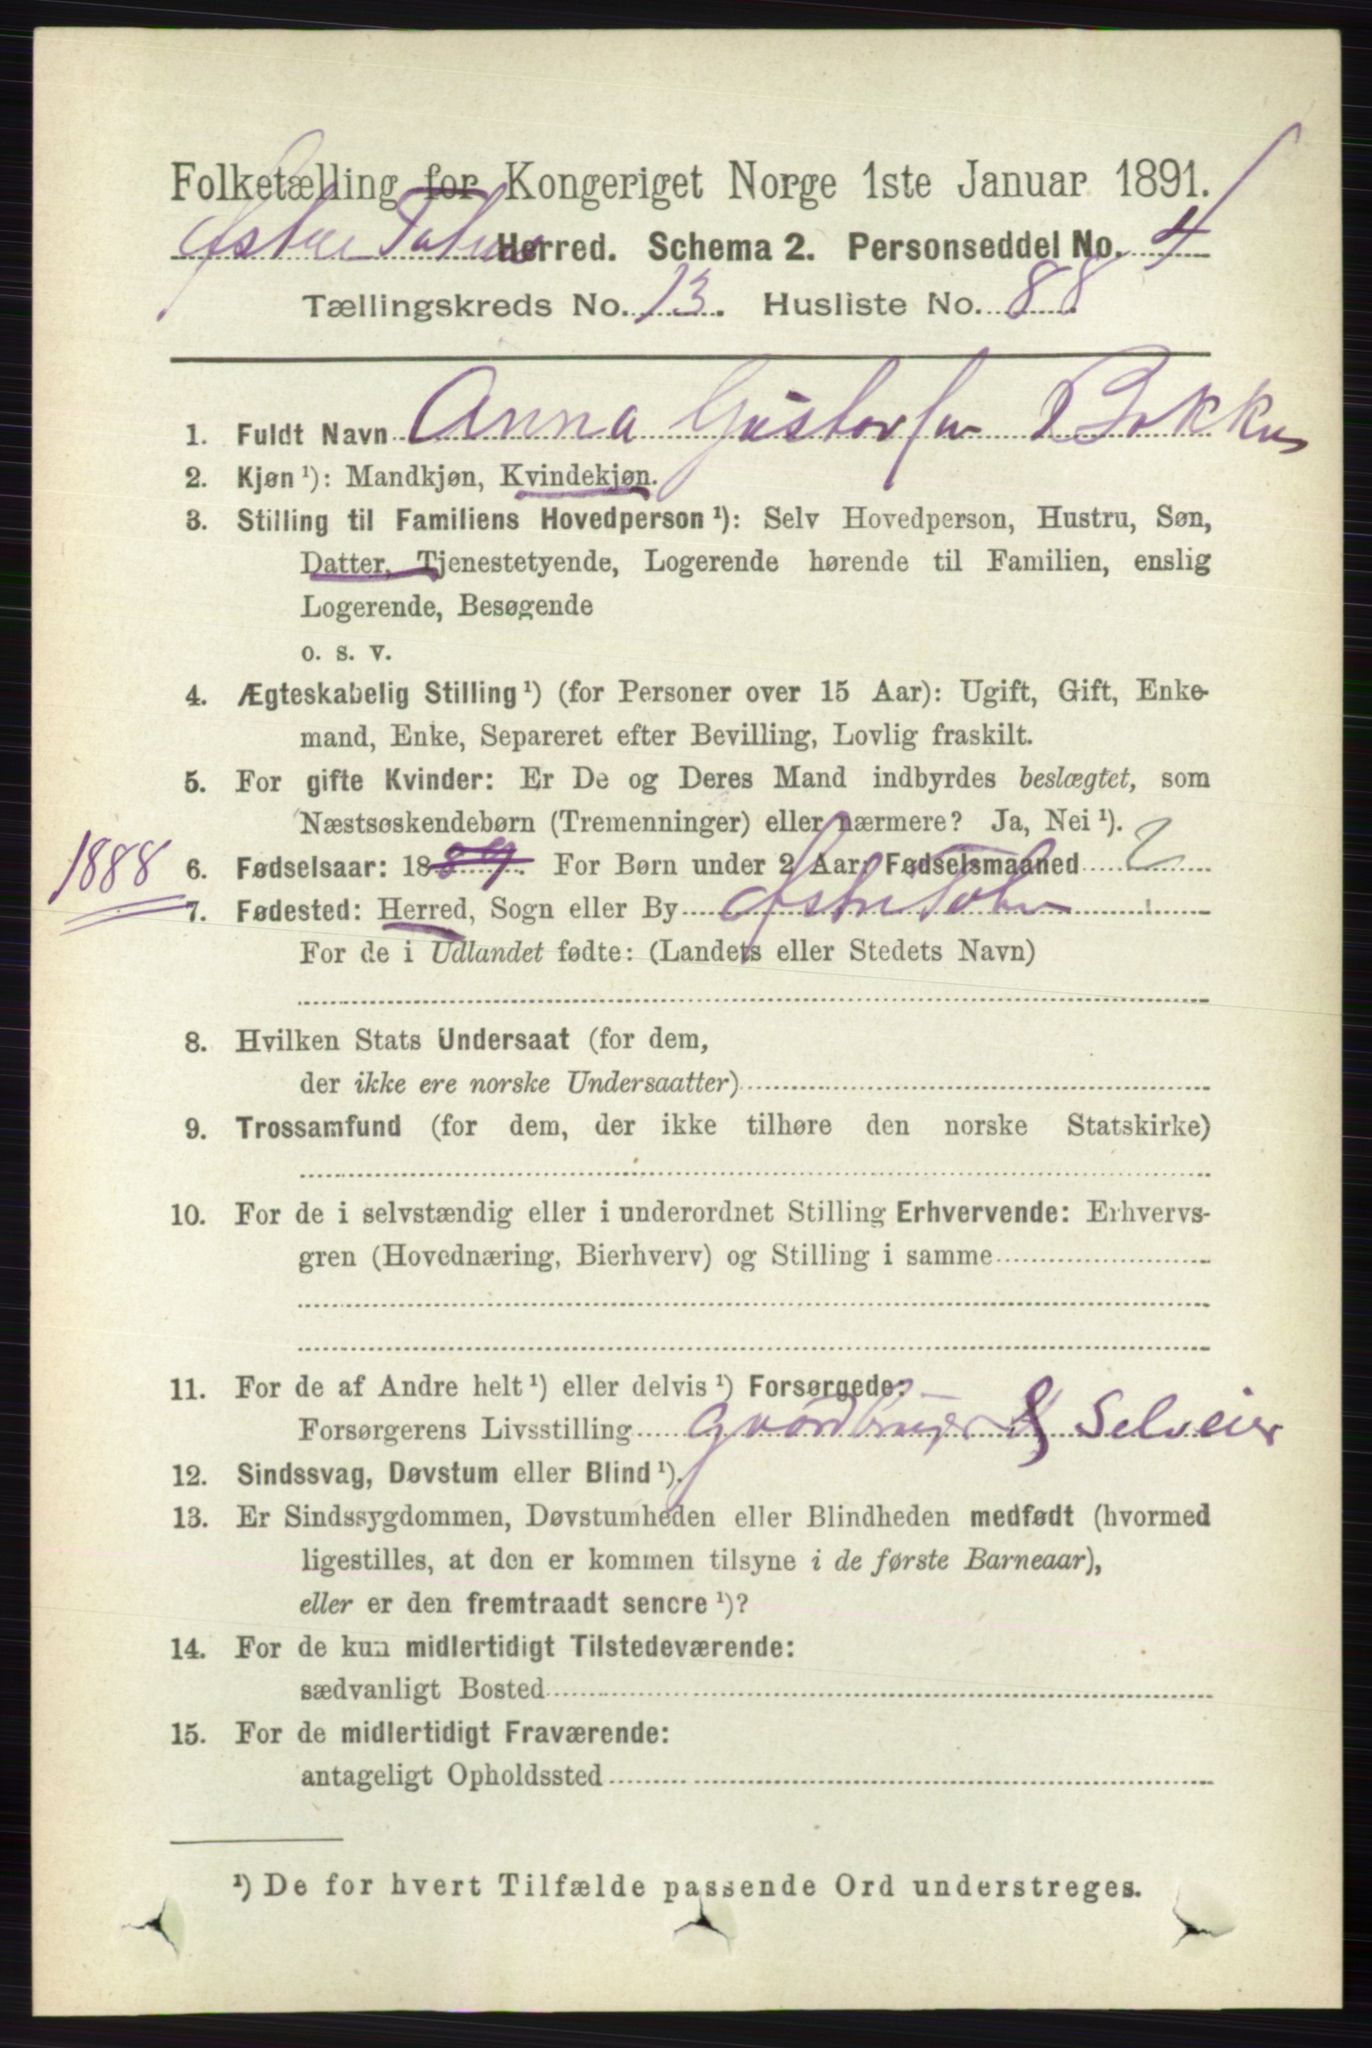 Folketælling for Kongeriget Norge 1ste Januar 1891.
Østre Toten Herred. Schema 2. Personseddel No. 4
Tællingskreds No. 13. Husliste No. 88.
1. Fuldt Navn Anna Gustavsen
2. Kjøn ¹): Mandkjøn, Kvindekjøn.
3. Stilling til Familiens Hovedperson ¹): Selv Hovedperson, Hustru, Søn,
Datter, Tjenestetyende, Logerende hørende til Familien, enslig
Logerende, Besøgende
o. s. v.
4. Ægteskabelig Stilling ¹) (for Personer over 15 Aar): Ugift, Gift, Enke-
mand, Enke, Separeret efter Bevilling, Lovlig fraskilt.
5. For gifte Kvinder: Er De og Deres Mand indbyrdes beslægtet, som
Næstsøskendebørn (Tremenninger) eller nærmere? Ja, Nei ¹).
1888 6. Fødselsaar: 1889. For Børn under 2 Aar: Fødselsmaaned 2
7. Fødested: Herred, Sogn eller By Østre Toten
For de i Udlandet fødte: (Landets eller Stedets Navn)
8. Hvilken Stats Undersaat (for dem,
der ikke ere norske Undersaatter)
9. Trossamfund (for dem, der ikke tilhøre den norske Statskirke)
10. For de i selvstændig eller i underordnet Stilling Erhvervende: Erhvervs-
gren (Hovednæring, Bierhverv) og Stilling i samme
11. For de af Andre helt ¹) eller delvis ¹) Forsørgede:
Forsørgerens Livsstilling Gaardbruger & Selveier
12. Sindssvag, Døvstum eller Blind ¹).
13. Er Sindssygdommen, Døvstumheden eller Blindheden medfødt (hvormed
ligestilles, at den er kommen tilsyne i de første Barneaar),
eller er den fremtraadt senere ¹)?
14. For de kun midlertidigt Tilstedeværende:
sædvanligt Bosted
15. For de midlertidigt Fraværende:
antageligt Opholdssted
¹) De for hvert Tilfælde passende Ord understreges.